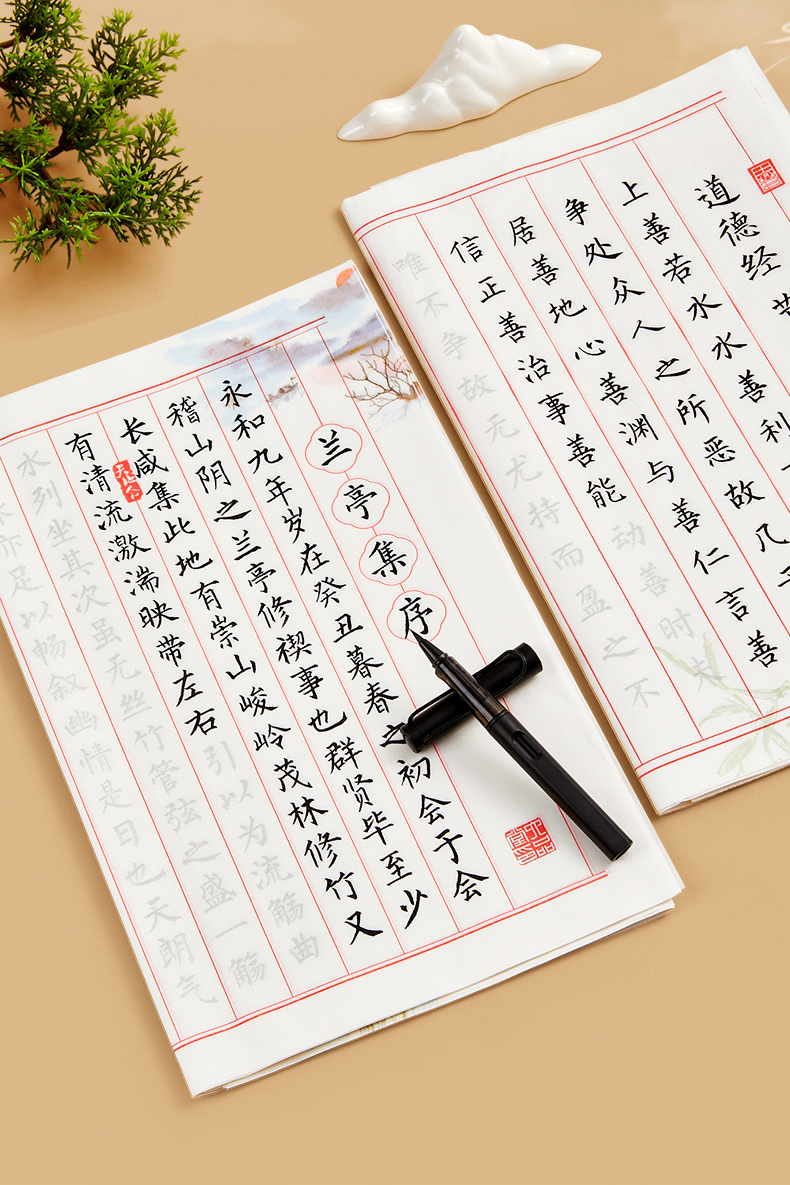 道德经
上善若水水善利
争处众人之所恶故几于
居善地心善渊与善仁言善
信正善治事善能动善时夫
唯不争故无尤持而盈之不
兰亭集序
永和九年岁在癸丑暮春之初会于会
稽山阴之兰亭修禊事也群贤毕至少
长咸集此地有崇山峻岭茂林修竹又
有清流激湍映带左右引以为流觞曲
水列坐其次虽无丝竹管弦之盛一觞
亦足以畅叙幽情是日也天朗气